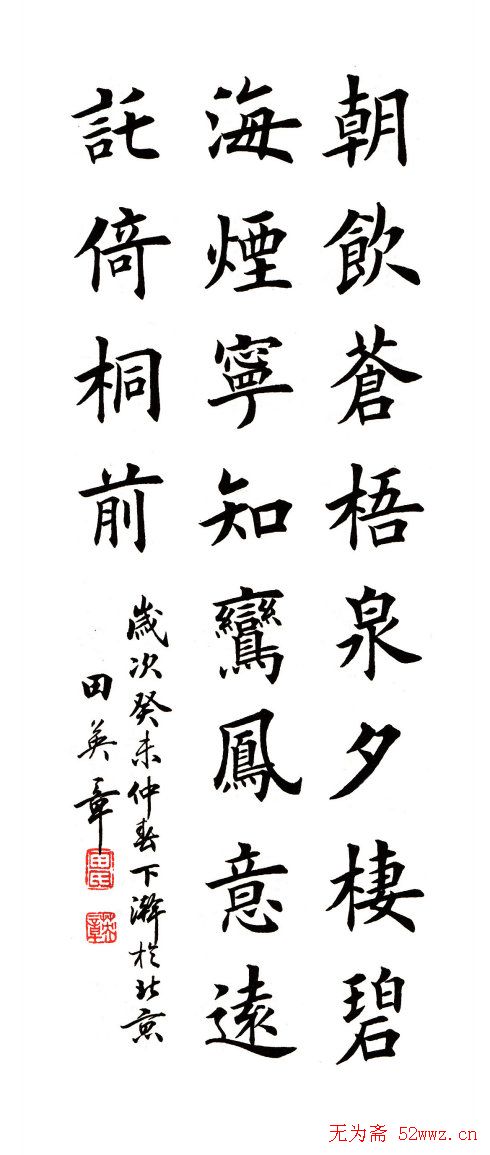 朝飲蒼梧泉夕棲碧
海煙寧知鸞鳳意遠
託倚桐前
歲次癸未仲春下澣於北京
田英章
无为斋 52wwz.cn